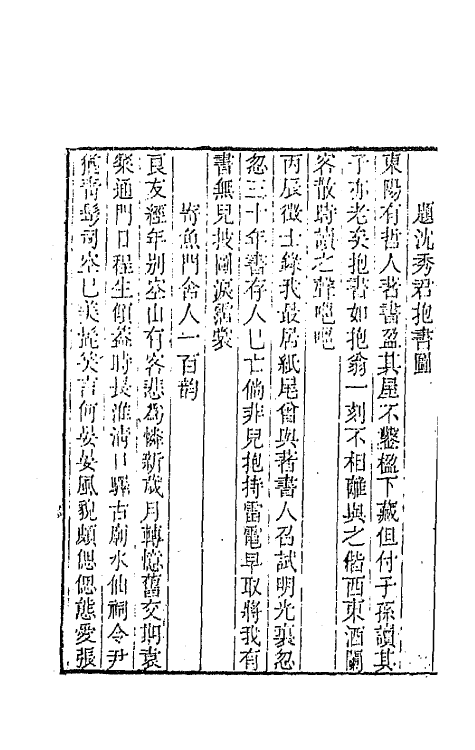 題沈秀君抱書圖
東陽有哲人著書盈其屋不鑿楹下藏但付子孫讀其
子亦老矣抱書如抱翁一刻不相離與之偕西東酒闌
客散時讀之聲喤喤
丙辰徵士錄我最居紙尾曾與著書人召試明光裏忽
忽三十年書存人已亡倘非兒抱持雷電早取將我有
書無兒披圖淚霑裳
寄魚門舍人一百韻
良友經年别空山有客悲為憐新歲月轉憶舊交期袁
粲通門日程生傾蓋時長淮淸口驛古廟水仙祠令尹
猶靑鬢司空已美髭笑言何晏晏風貌頗偲偲態愛張